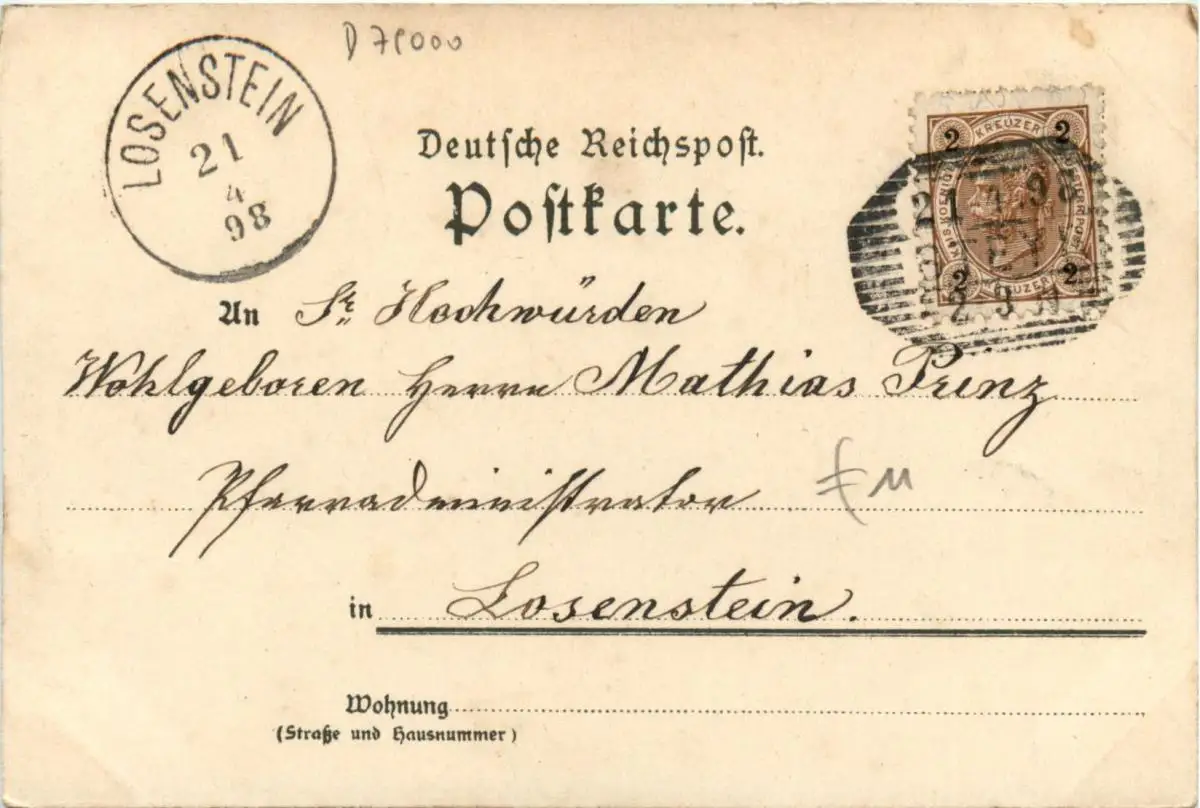 D 79000
LOSENSTEIN
21
4
98
Deutsche Reichspost.
Postkarte.
2 KREUZER 2
2 KREUZER 2
An Sr. Hochwürden
Wohlgeboren Herrn Mathias Prinz
Pfarradministrator
in Losenstein.
Wohnung
(Straße und Hausnummer)